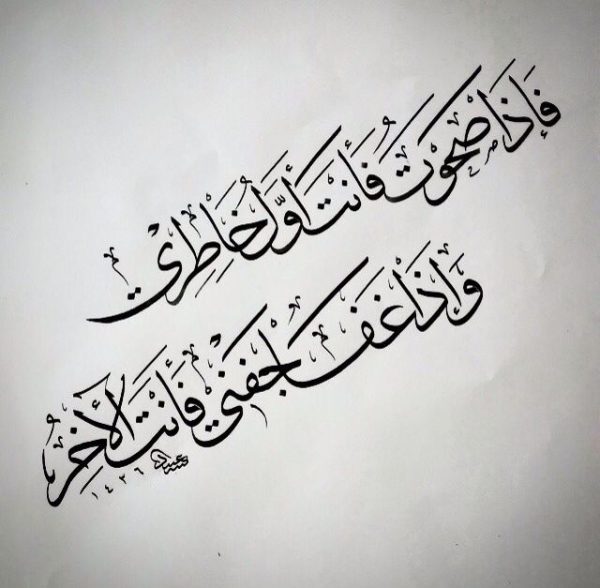 فَإِذَا صَحَوْتُ فَأَنْتَ أَوَّلُ خَاطِرِيْ
وَاذَا غَفَا جَفْنِيْ فَأَنْتَ الأَخِرُ